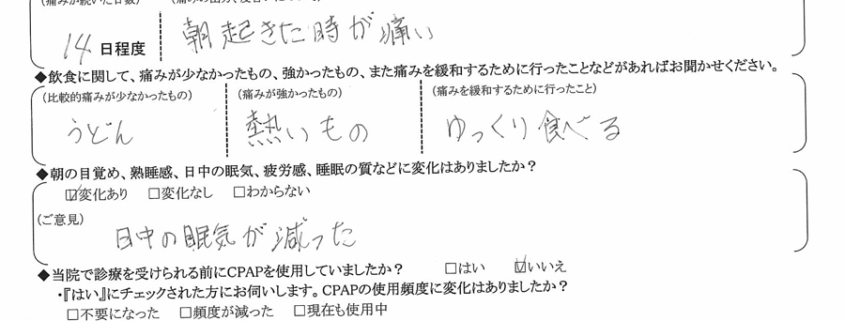 14日程度 朝起きた時が痛い
◆飲食に関して、痛みが少なかったもの、強かったもの、また痛みを緩和するために行ったことなどがあればお聞かせください。
(比較的痛みが少なかったもの) (痛みが強かったもの) (痛みを緩和するために行ったこと)
うどん 熱いもの ゆっくり食べる
◆朝の目覚め、熟睡感、日中の眠気、疲労感、睡眠の質などに変化はありましたか？
☑変化あり □変化なし □わからない
(ご意見)
日中の眠気が減った
◆当院で診療を受けられる前にCPAPを使用していましたか？ □はい ☑いいえ
・『はい』にチェックされた方にお伺いします。CPAPの使用頻度に変化はありましたか？
□不要になった □頻度が減った □現在も使用中